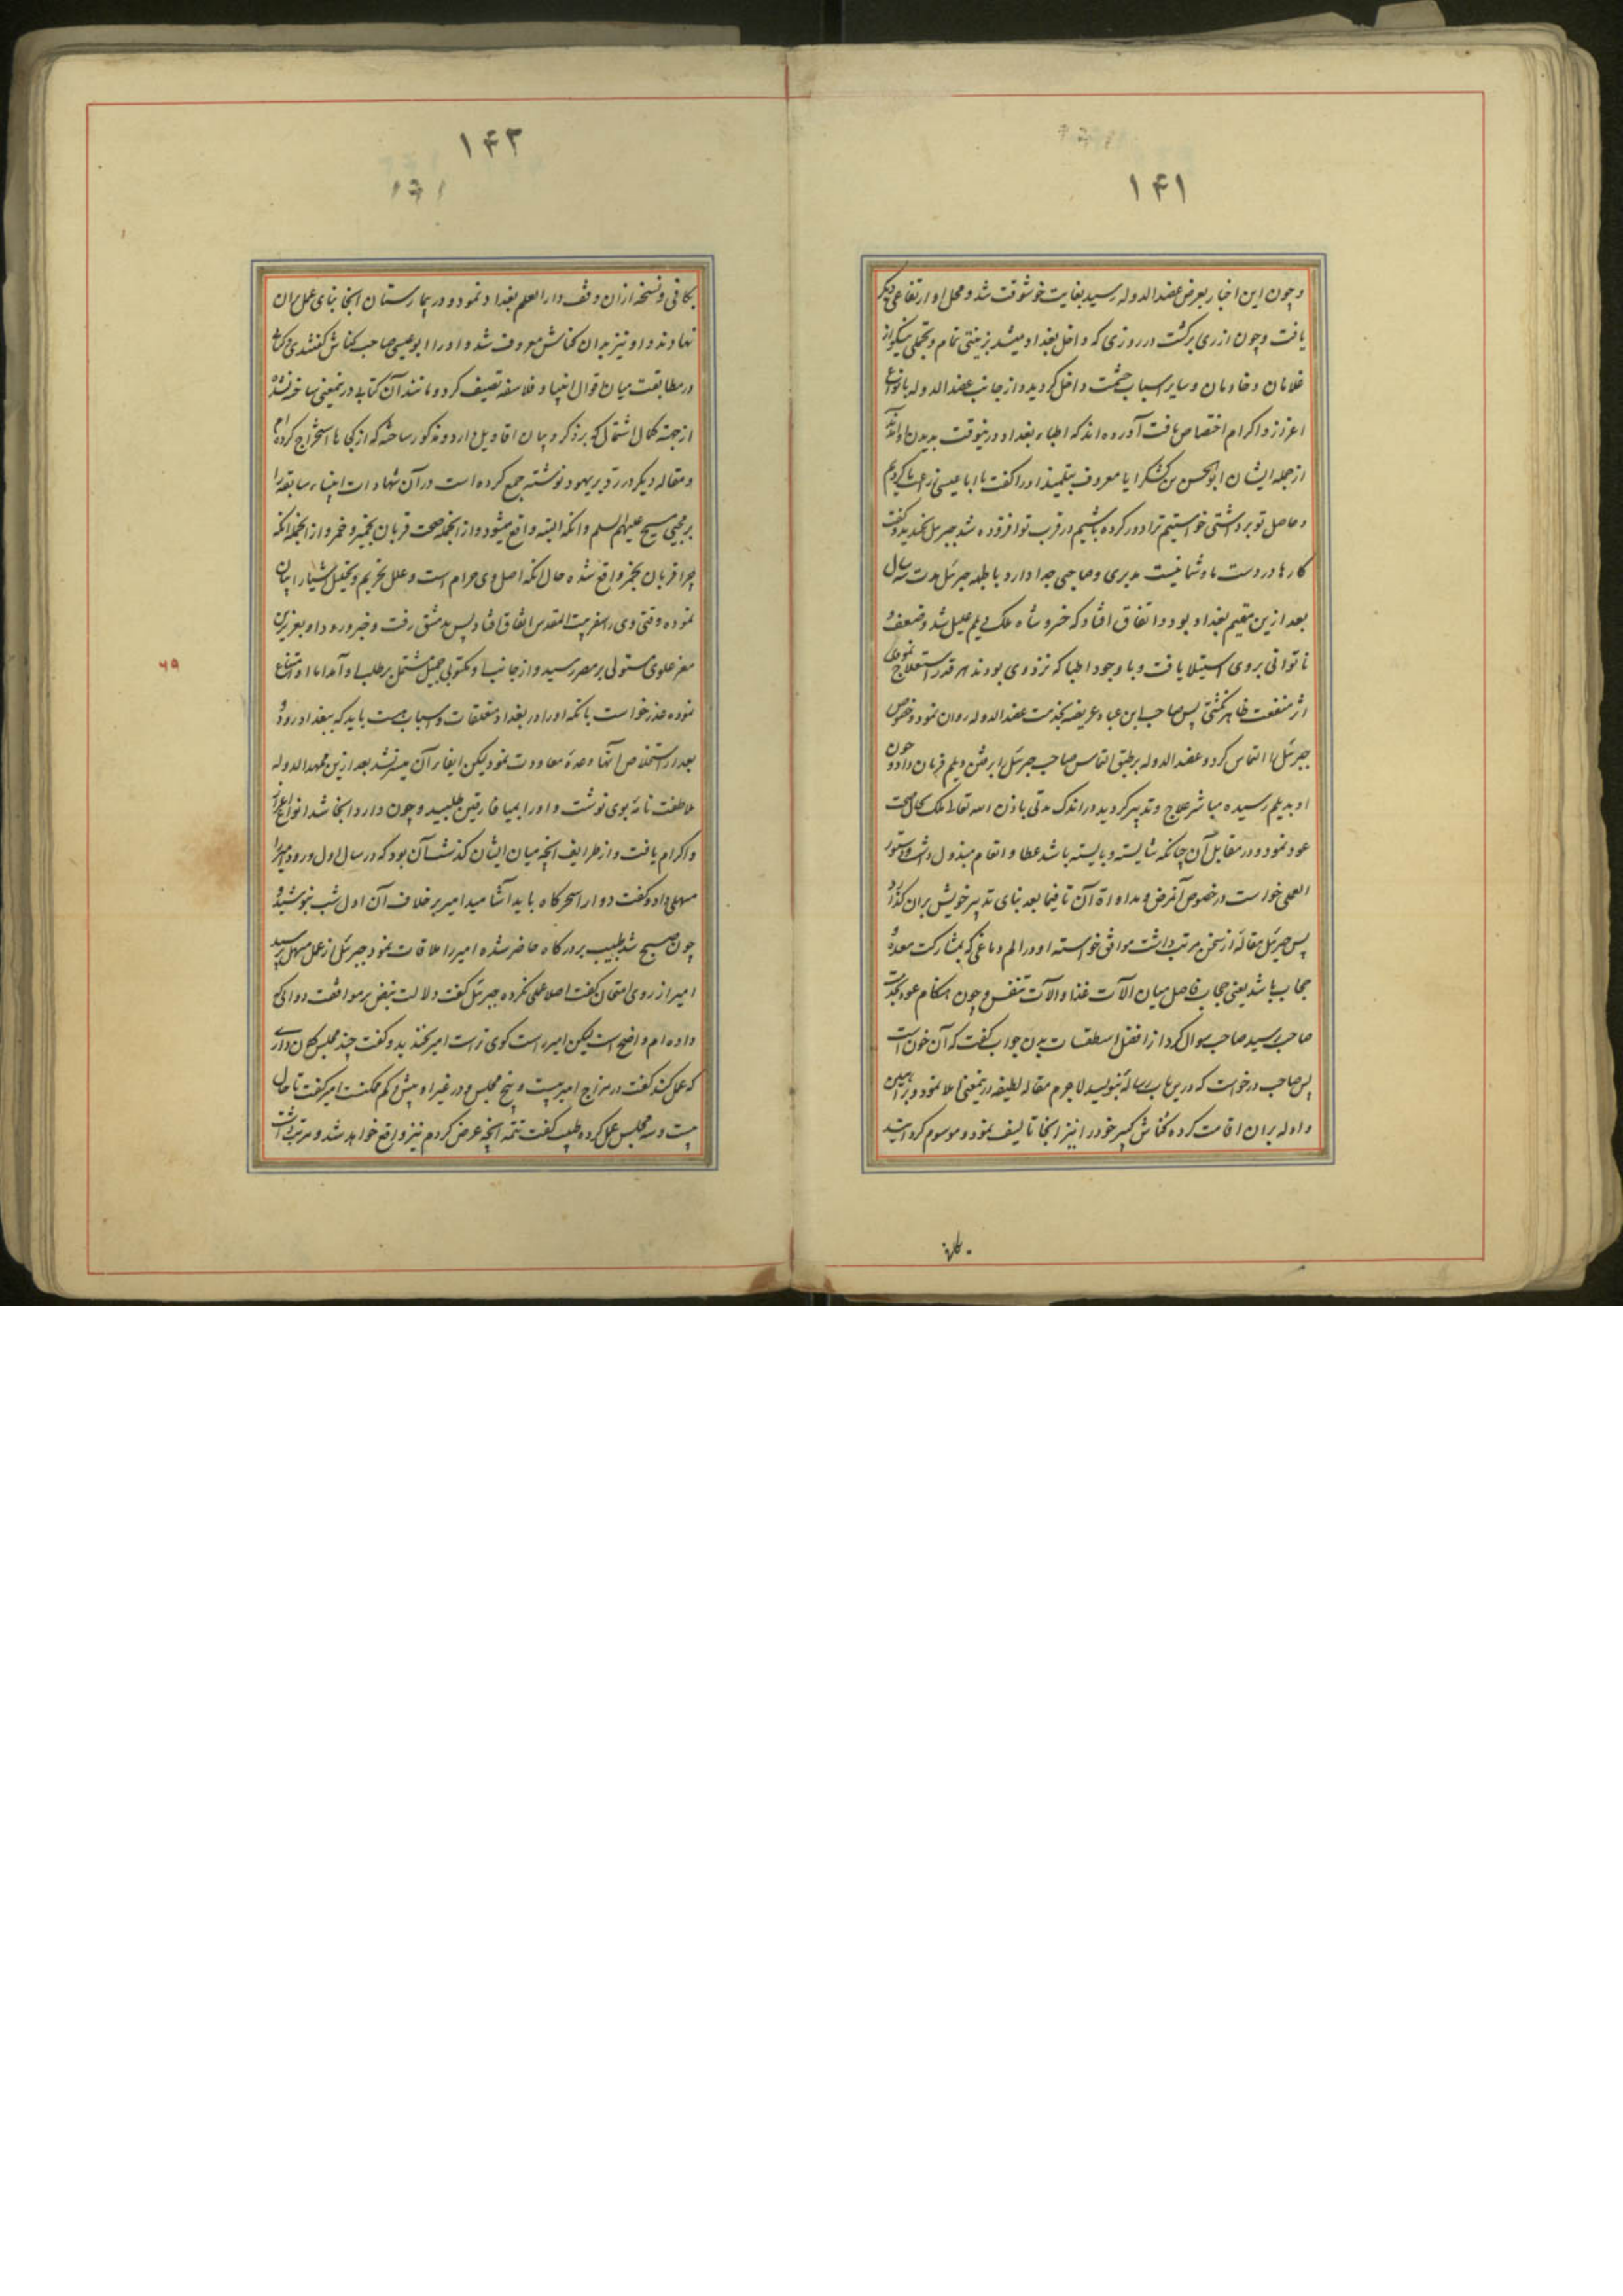 ۱۴۱
و چون این اخبار بعرض عضد الدوله رسید بغایت خوشوقت شد و محل او ارتفاعی دیکر
یافت و چون از ری برکشت در روزی که داخل بغداد میشد بزینتی تمام و تجملی نیکو از
غلامان و خادمان و سایر اسباب حشمت داخل کردید و از جانب عضد الدوله بانواع
اعزاز و اکرام اختصاص یافت آورده اند که اطباء بغداد درینوقت بدیدن او آمدند
از جمله ایشان ابو الحسن بن کشکرایا معروف بتلمیذ او را کفت یا ابا عیسی زراعت ما کردیم
و حاصل تو برداشتی خواستیم ترا دور کرده باشیم در قرب تو افزوده شد جبرئیل بخندید و کفت
کارها در دست ما و شما نیست مدبری و صاحبی جدا دارد بالجمله جبرئیل مدت سه سال
بعد ازین مقیم بغداد بود و اتفاق افتاد که خسرو شاه ملک دیلم علیل شد و ضعف و
ناتوانی بر وی استیلا یافت و با وجود اطبا که نزد وی بودند هر قدر استعلاج نمودی
اثر منفعت ظاهر نکشتی پس صاحب ابن عباد عریضه بخدمت عضد الدوله روان نمود و خصوص
جبرئیل را التماس کرد و عضد الدوله بر طبق التماس صاحب جبرئیل را برفتن دیلم فرمان داد و چون
او بدیلم رسیده مباشر علاج و تدبیر کردید در اندک مدتی باذن الله تعالی ملک بحال صحت
عود نمود و در مقابل آن چنانکه شایسته و بایسته باشد عطا و انعام مبذول داشت و دستور
العملی خواست در خصوص آنمرض و مداواة آن تا فیما بعد بنای تدبیر خویش بران کذارد
پس جبرئیل مقالهٔ از سخن مرتب داشت موافق خواسته او در الم دماغی که بمشارکت معده و
حجاب باشد یعنی حجاب فاصل میان الآت غذا و الآت تنفس و چون هنکام عود بخدمت
صاحب رسید صاحب سوال کرد از افضل اسطقسات بدن جواب کفت که آن خون است
پس صاحب درخواست که درین باب رسالهٔ بنویسد لاجرم مقاله لطیفه درینمعنی املا نمود و براهین
و ادله بران اقامت کرده کناش کبیر خود را نیز انجا تالیف نمود و موسوم کردانید
۱۴۲
بکافی و نسخه ازان وقف دار العلم بغداد نمود و در بیمارستان انجا بنای عمل بران
نهادند و او نیز بدان کناش معروف شد و او را ابو عیسی صاحب کناش کفتندی و کتابی
در مطابقت میان اقوال انبیا و فلاسفه تصنیف کرد و مانند آن کتاب درینمعنی ساخته نشده
از جهته کمال اشتمال که بر ذکر و بیان اقاویل دارد و مذکور ساخته که از کجاها استخراج کرده ام
و مقاله دیکر در رد بر یهود نوشته جمع کرده است در آن شهادات انبیاء سابقه را
بر مجیی مسیح علیهم السلم و انکه البته واقع میشود و از انجمله صحت قربان بخمیر و خمر و از انجمله انکه
چرا قربان بخمر واقع شده حال انکه اصل وی حرام است و علل تحریم و تحلیل اشیا را بیان
نموده وقتی وی را سفر بیت المقدس اتفاق افتاد پس بدمشق رفت و خبر ورود او بعزیز
مصر علوی مستولی بر مصر رسید و از جانب او مکتوبی جمیل مشتمل بر طلب او آمد اما او امتناع
نموده عذر خواست بانکه او را در بغداد متعلقات و اسباب هست باید که ببغداد رود و
بعد از استخلاص آنها وعدهٔ معاودت نمود لیکن ایفاء آن میسر نشد بعد ازین ممهد الدوله
ملاطفت نامهٔ بوی نوشت و او را بمیافارقین طلبید و چون وارد انجا شد انواع اعزاز
و اکرام یافت و از طرایف انچه میان ایشان کذشت آن بود که در سال اول ورود امیر را
مسهلی داد و کفت دوا را سحرکاه باید آشامید امیر بر خلاف آن اول شب بنوشید و
چون صبح شد طبیب بر درکاه حاضر شده امیر را ملاقات نمود جبرئیل از عمل مسهل پرسید
امیر از روی امتحان کفت اصلا عملی نکرده جبرئیل کفت دلالت نبض بر موافقت دوائی که
داده ام واضح است لیکن امیر راست کوی تر است امیر بخندید و کفت چند مجلس کمان داری
که عمل کند کفت در مزاج امیر بیست و پنج مجلس و در غیر او بیش و کم ممکنست امیر کفت تا حال
بیست و سه مجلس عمل کرده طبیب کفت تتمه انچه عرض کردم نیز واقع خواهد شد و مرتب داشت
۶۹